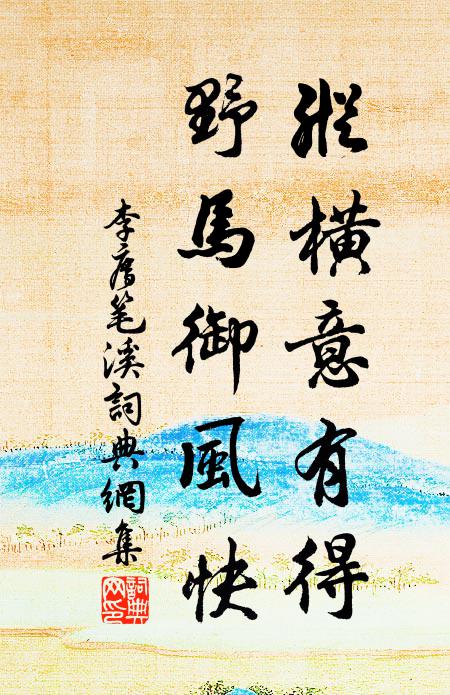 縱橫意有得
野馬御風快
李廌笔溪詞典網集
詞典网印